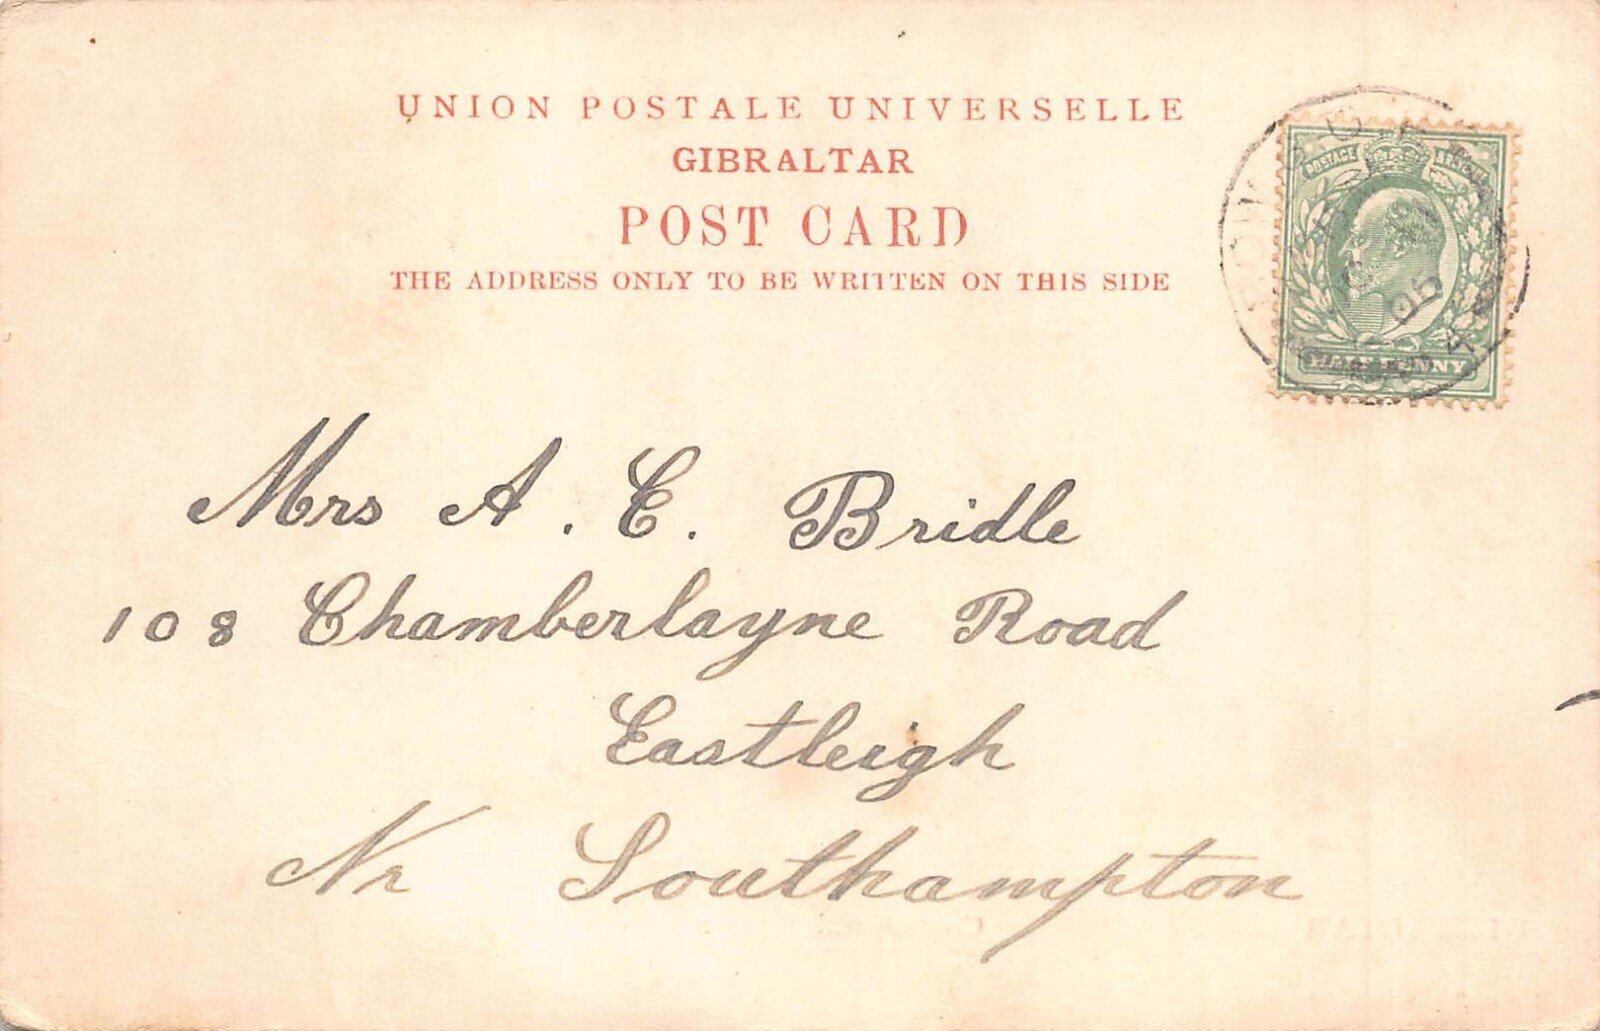 UNION POSTALE UNIVERSELLE
GIBRALTAR
POST CARD
THE ADDRESS ONLY TO BE WRITTEN ON THIS SIDE
POSTAGE
HALFPENNY
Mrs A. E. Bridle
108 Chamberlayne Road
Eastleigh
Nr Southampton